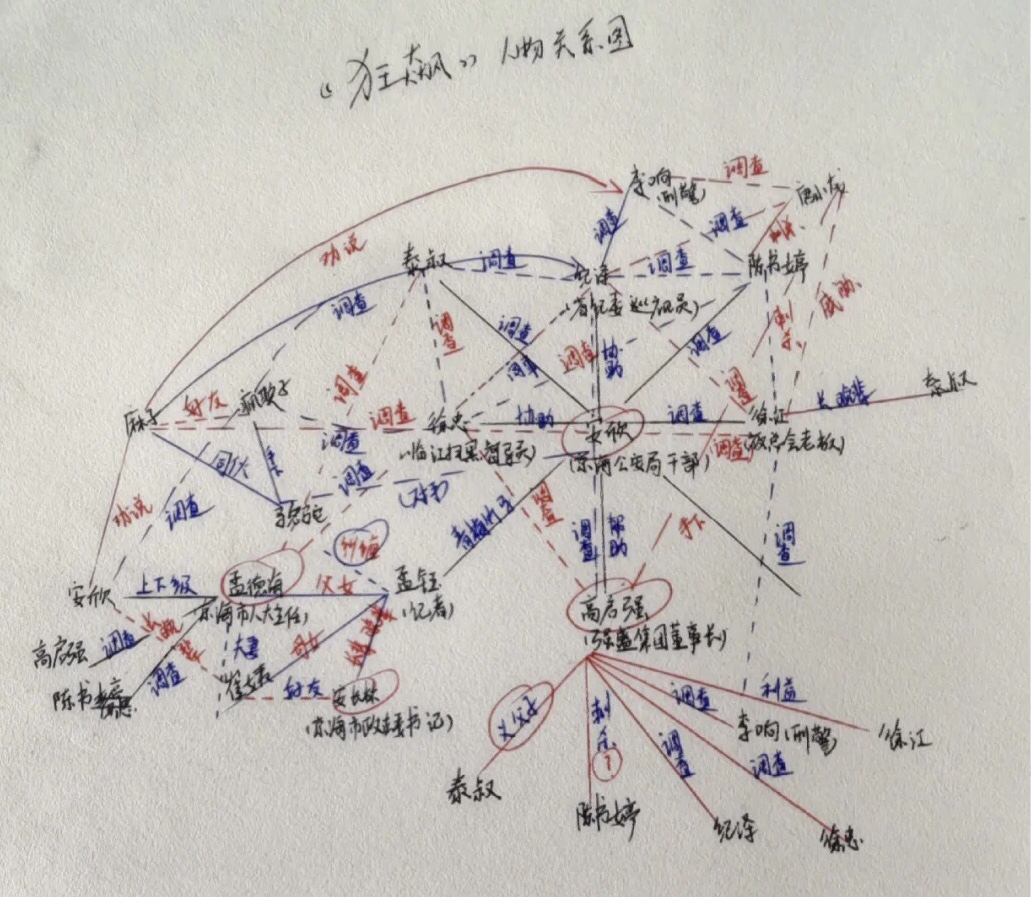 “狂飙” 人物关系图
李响
(刑警)
调查
唐小龙
劝说
调查
调查
泰叔
调查
纪泽
调查
陈书婷
(省纪委巡视员)
调查
调查
调查
调查
协助
调查
刺杀
调查
同事
调查
泰叔
麻子
好友
疯驴子
调查
徐忠
协助
安欣
调查
徐江
(临江扫黑督导员)
(京海公安局干部)
调查
同伙
调查
调查
劝说
调查
青梅竹马
调查
调查
帮助
手下
调查
安欣
上下级
孟德海
父女
孟钰
(京海市人大主任)
(记者)
高启强
(强盛集团董事长)
高启强
调查
陈书婷
调查
夫妻
崔姨
好友
安长林
(京海市政法委书记)
义父子
刺杀
?
调查
利益
李响(刑警)
徐江
调查
调查
泰叔
陈书婷
纪泽
徐忠